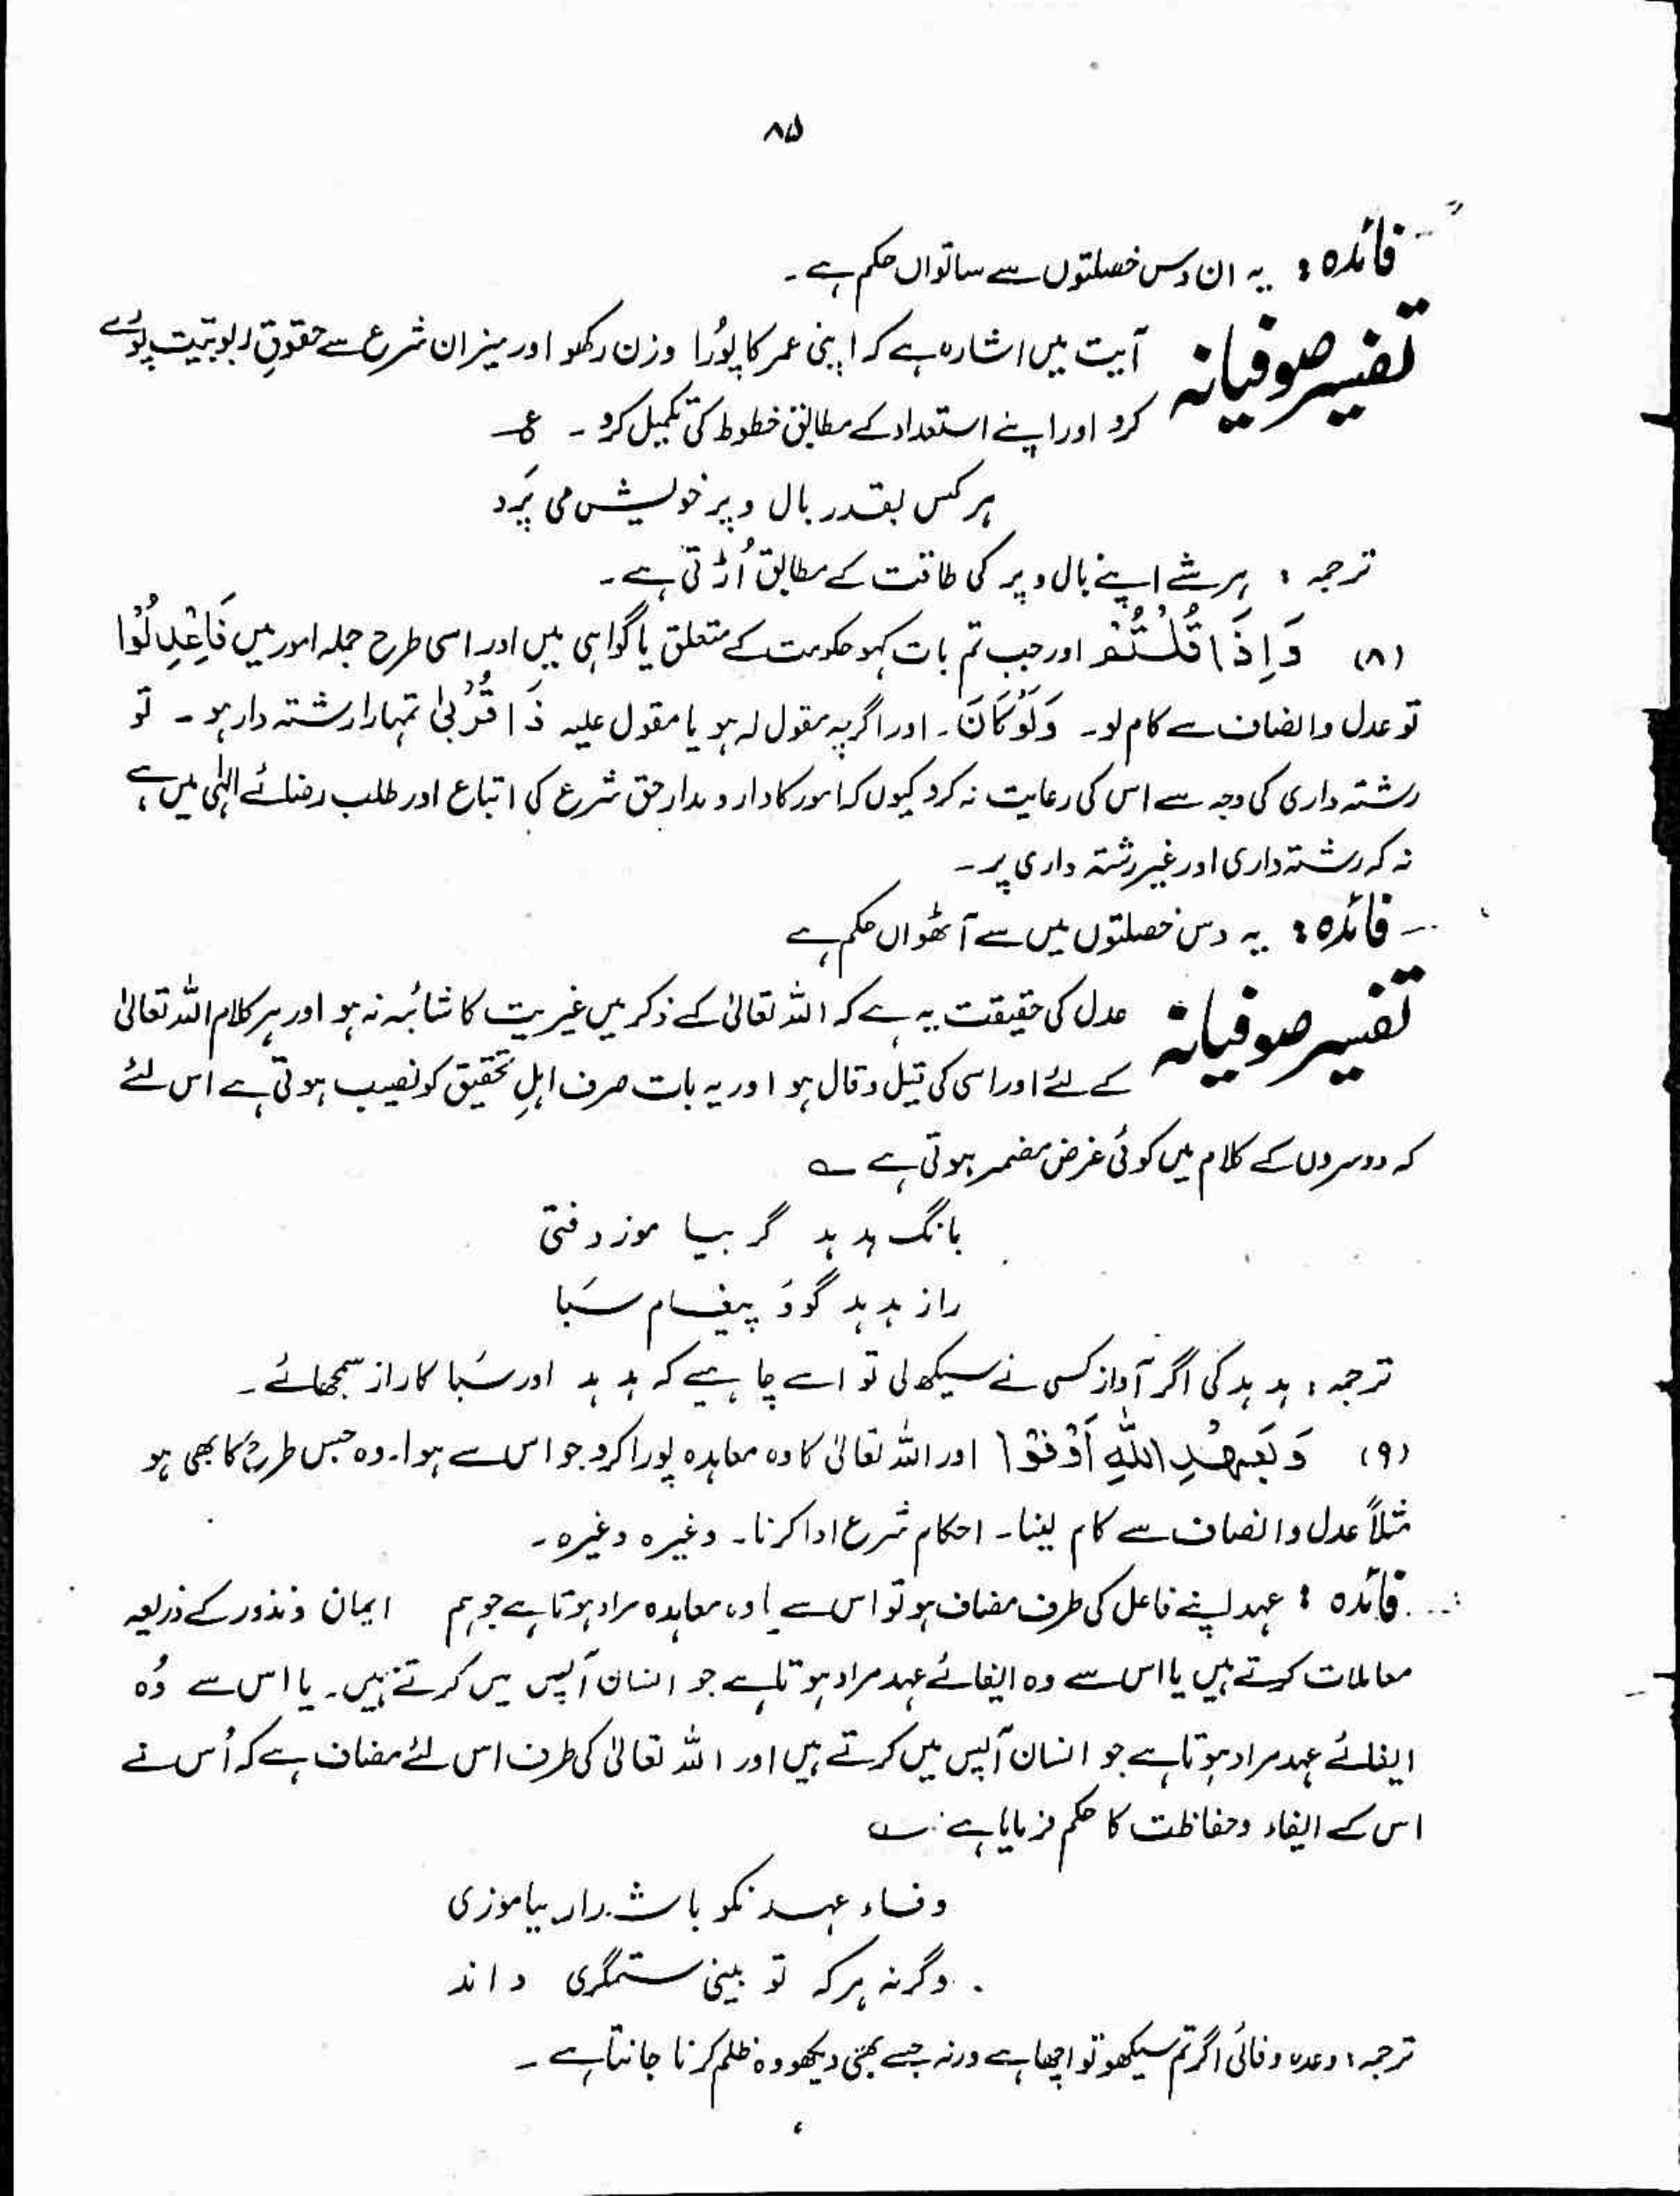 ۸۵
فائدہ : یہ ان دس خصلتوں سے ساتواں حکم ہے۔
تفسیر صوفیانہ آیت میں اشارہ ہے کہ اپنی عمر کا پُورا وزن رکھو اور میزان شرع سے حقوقِ ربوبیّت پورے
کرو اور اپنے استعداد کے مطابق خطوط کی تکمیل کرو ۔ ع
ہر کس بقدر بال و پر خویش می پَرد
ترجمہ : ہر شے اپنے بال و پر کی طاقت کے مطابق اُڑتی ہے۔
(۸) وَاِذَا قُلْتُمْ اور جب تم بات کہو حکومت کے متعلق یا گواہی میں اور اسی طرح جملہ امور میں فَاعْدِلُوْا
تو عدل و انصاف سے کام لو۔ وَلَوْ كَانَ ۔ اور اگرچہ مقول لہ ہو یا مقول علیہ ذَا قُرْبٰی تمہارا رشتہ دار ہو ۔ تو
رشتہ داری کی وجہ سے اس کی رعایت نہ کرو کیوں کہ امور کا دار و مدار حق شرع کی اتباع اور طلب رضائے الٰہی میں ہے
نہ کہ رشتہ داری اور غیر رشتہ داری پر ۔
فائدہ : یہ دس خصلتوں میں سے آٹھواں حکم ہے
تفسیر صوفیانہ عدل کی حقیقت یہ ہے کہ اللہ تعالیٰ کے ذکر میں غیریت کا شائبہ نہ ہو اور ہر کلام اللہ تعالیٰ
کے لئے اور اسی کی قیل و قال ہو اور یہ بات صرف اہلِ تحقیق کو نصیب ہوتی ہے اس لئے
کہ دوسروں کے کلام میں کوئی غرض مضمر ہوتی ہے ؎
بانگ ہدہد گر بیا موزد فتی
راز ہدہد گو وَ پیغام سَبا
ترجمہ : ہدہد کی اگر آواز کسی نے سیکھ لی تو اسے چاہیے کہ ہدہد اور سَبا کا راز سمجھائے ۔
(۹) وَبِعَهْدِ اللّٰهِ اَوْفُوْا اور اللہ تعالیٰ کا وہ معاہدہ پورا کرو جو اس سے ہوا۔ وہ جس طرح کا بھی ہو
مثلاً عدل و انصاف سے کام لینا ۔ احکام شرع ادا کرنا ۔ وغیرہ وغیرہ ۔
فائدہ : عہد اپنے فاعل کی طرف مضاف ہو تو اس سے یا وہ معاہدہ مراد ہوتا ہے جو ہم ایمان و نذور کے ذریعہ
معاملات کرتے ہیں یا اس سے وہ ایفائے عہد مراد ہوتا ہے جو انسان آپس میں کرتے ہیں۔ یا اس سے وُہ
ایفائے عہد مراد ہوتا ہے جو انسان آپس میں کرتے ہیں اور اللہ تعالیٰ کی طرف اس لئے مضاف ہے کہ اُس نے
اس کے ایفاء و حفاظت کا حکم فرمایا ہے ؎
وفاء عہد نکو باشد ار بیاموزی
وگرنہ ہر کہ تو بینی ستمگری داند
ترجمہ : وعدہ وفائی اگر تم سیکھو تو اچھا ہے ورنہ جسے بھی دیکھو وہ ظلم کرنا جانتا ہے ۔